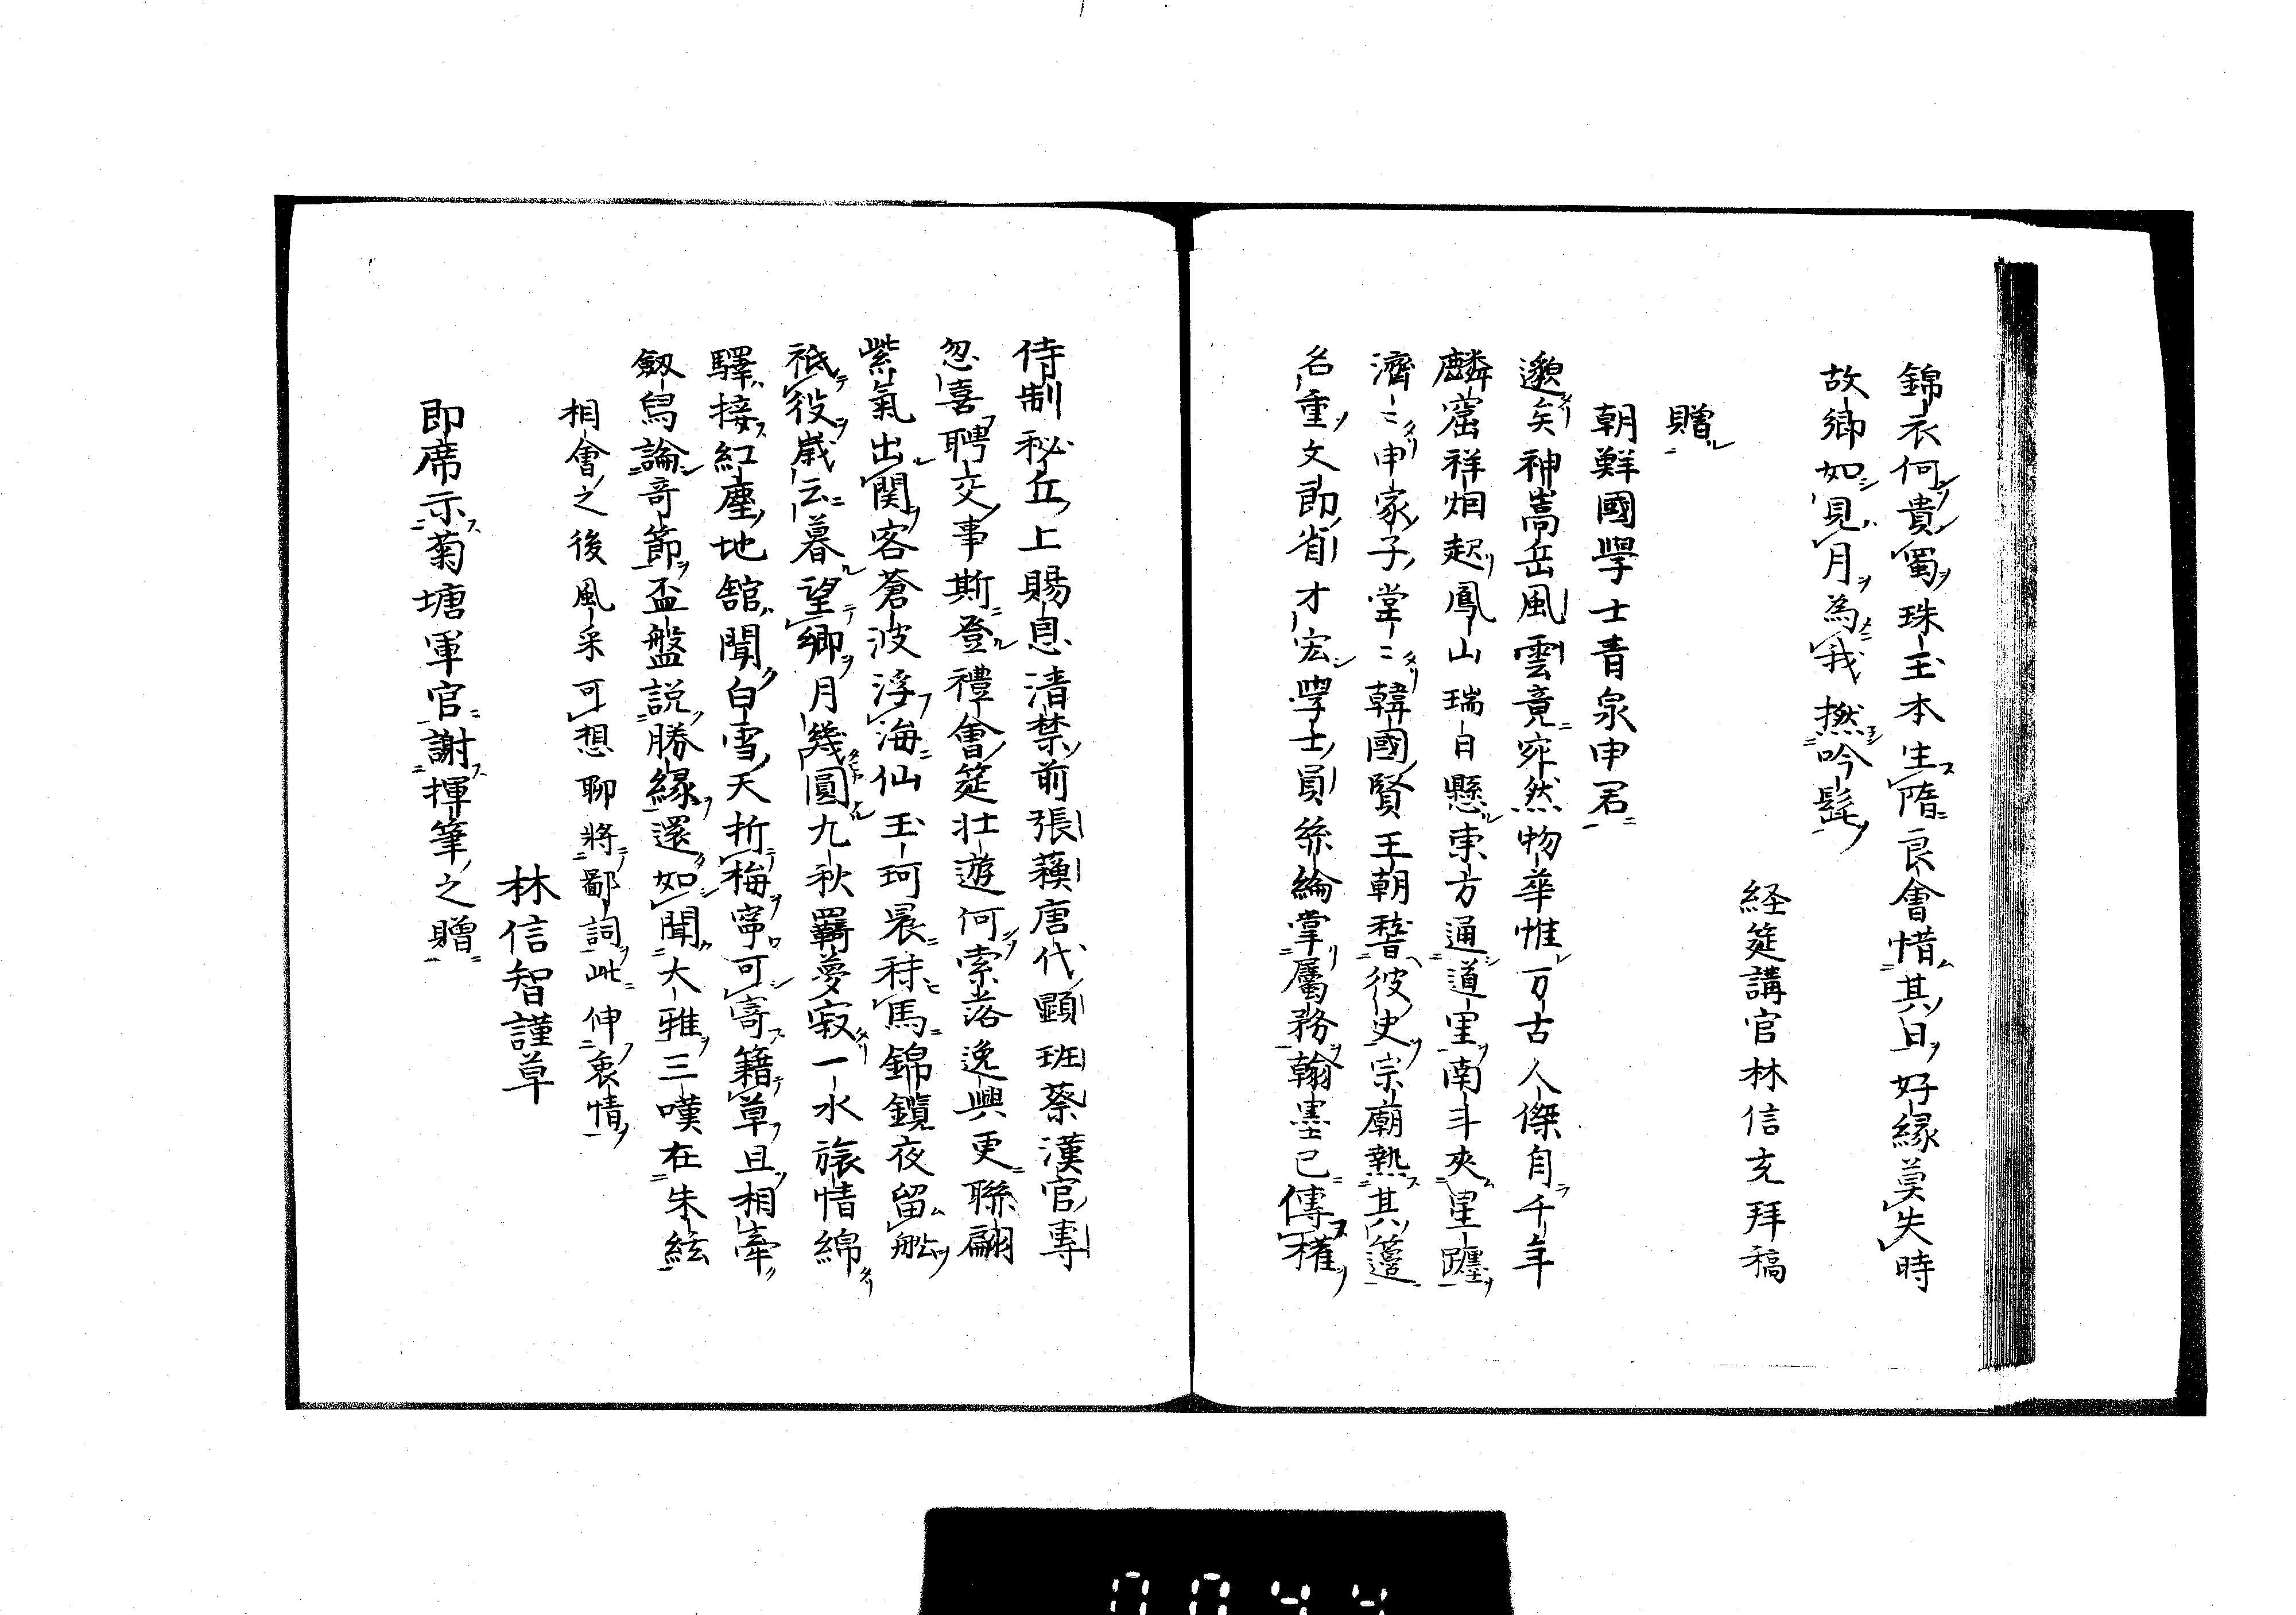 錦衣何貴蜀珠玉本生隋良會惜其日好縁莫失時
故郷如見月為我撚吟髭
経筵講官林信充拜稿
贈
朝鮮國學士青泉申君
邈矣神嵩岳風雲竟窣然物華惟万古人傑自千年
麟窟祥烟起鳳山瑞日懸東方通道里南斗夾星躔
濟〻申家子堂〻韓國賢王朝稽彼史宗廟熟其籩
名重文即省才宏學士員絲綸掌屬務翰墨已傳權
侍制秘丘上賜息清禁前張蘓唐代顕班蔡漢官專
忽喜聘交事斯登禮會筵壮遊何索落逸興更聯翩
紫氣出関客蒼波浮海仙玉珂晨秣馬錦纜夜留舩
祗役歳云暮望郷月幾圓九秋羇夢寂一水旅情綿
驛接紅塵地舘聞白雪天折梅寧可寄籍草且相牽
劔舄論奇節盃盤説勝縁還如聞大雅三嘆在朱絃
相會之後風采可想聊將鄙詞此伸衷情
林信智謹草
即席示菊塘軍官謝揮筆之贈
0044